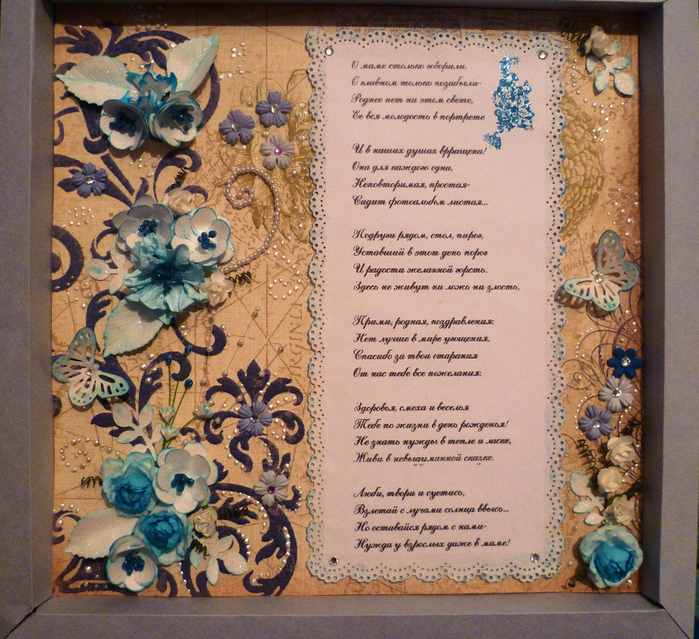 О маме столько говорили,
О главном только позабыли-
Роднее нет на этом свете,
Ее вся молодость в портрете
И в наших душах врращена!
Она для каждого одна,
Неповторимая, простая-
Сидит фотоальбом листая...
Подруги рядом, стол, пирог,
Уставший в этот день порог
И радости желанной горсть.
Здесь не живут ни ложь ни злость,
Прими, родная, поздравления:
Нет лучше в мире угощения,
Спасибо за твои старания
От нас тебе все пожелания:
Здоровья, смеха и веселья
Тебе по жизни в день рожденья!
Не знать нужды в тепле и ласке,
Живи в невыдуманной сказке.
Люби, твори и суетись,
Взлетай с лучами солнца ввысь...
Но оставайся рядом с нами-
Нужда у взрослых даже в маме!